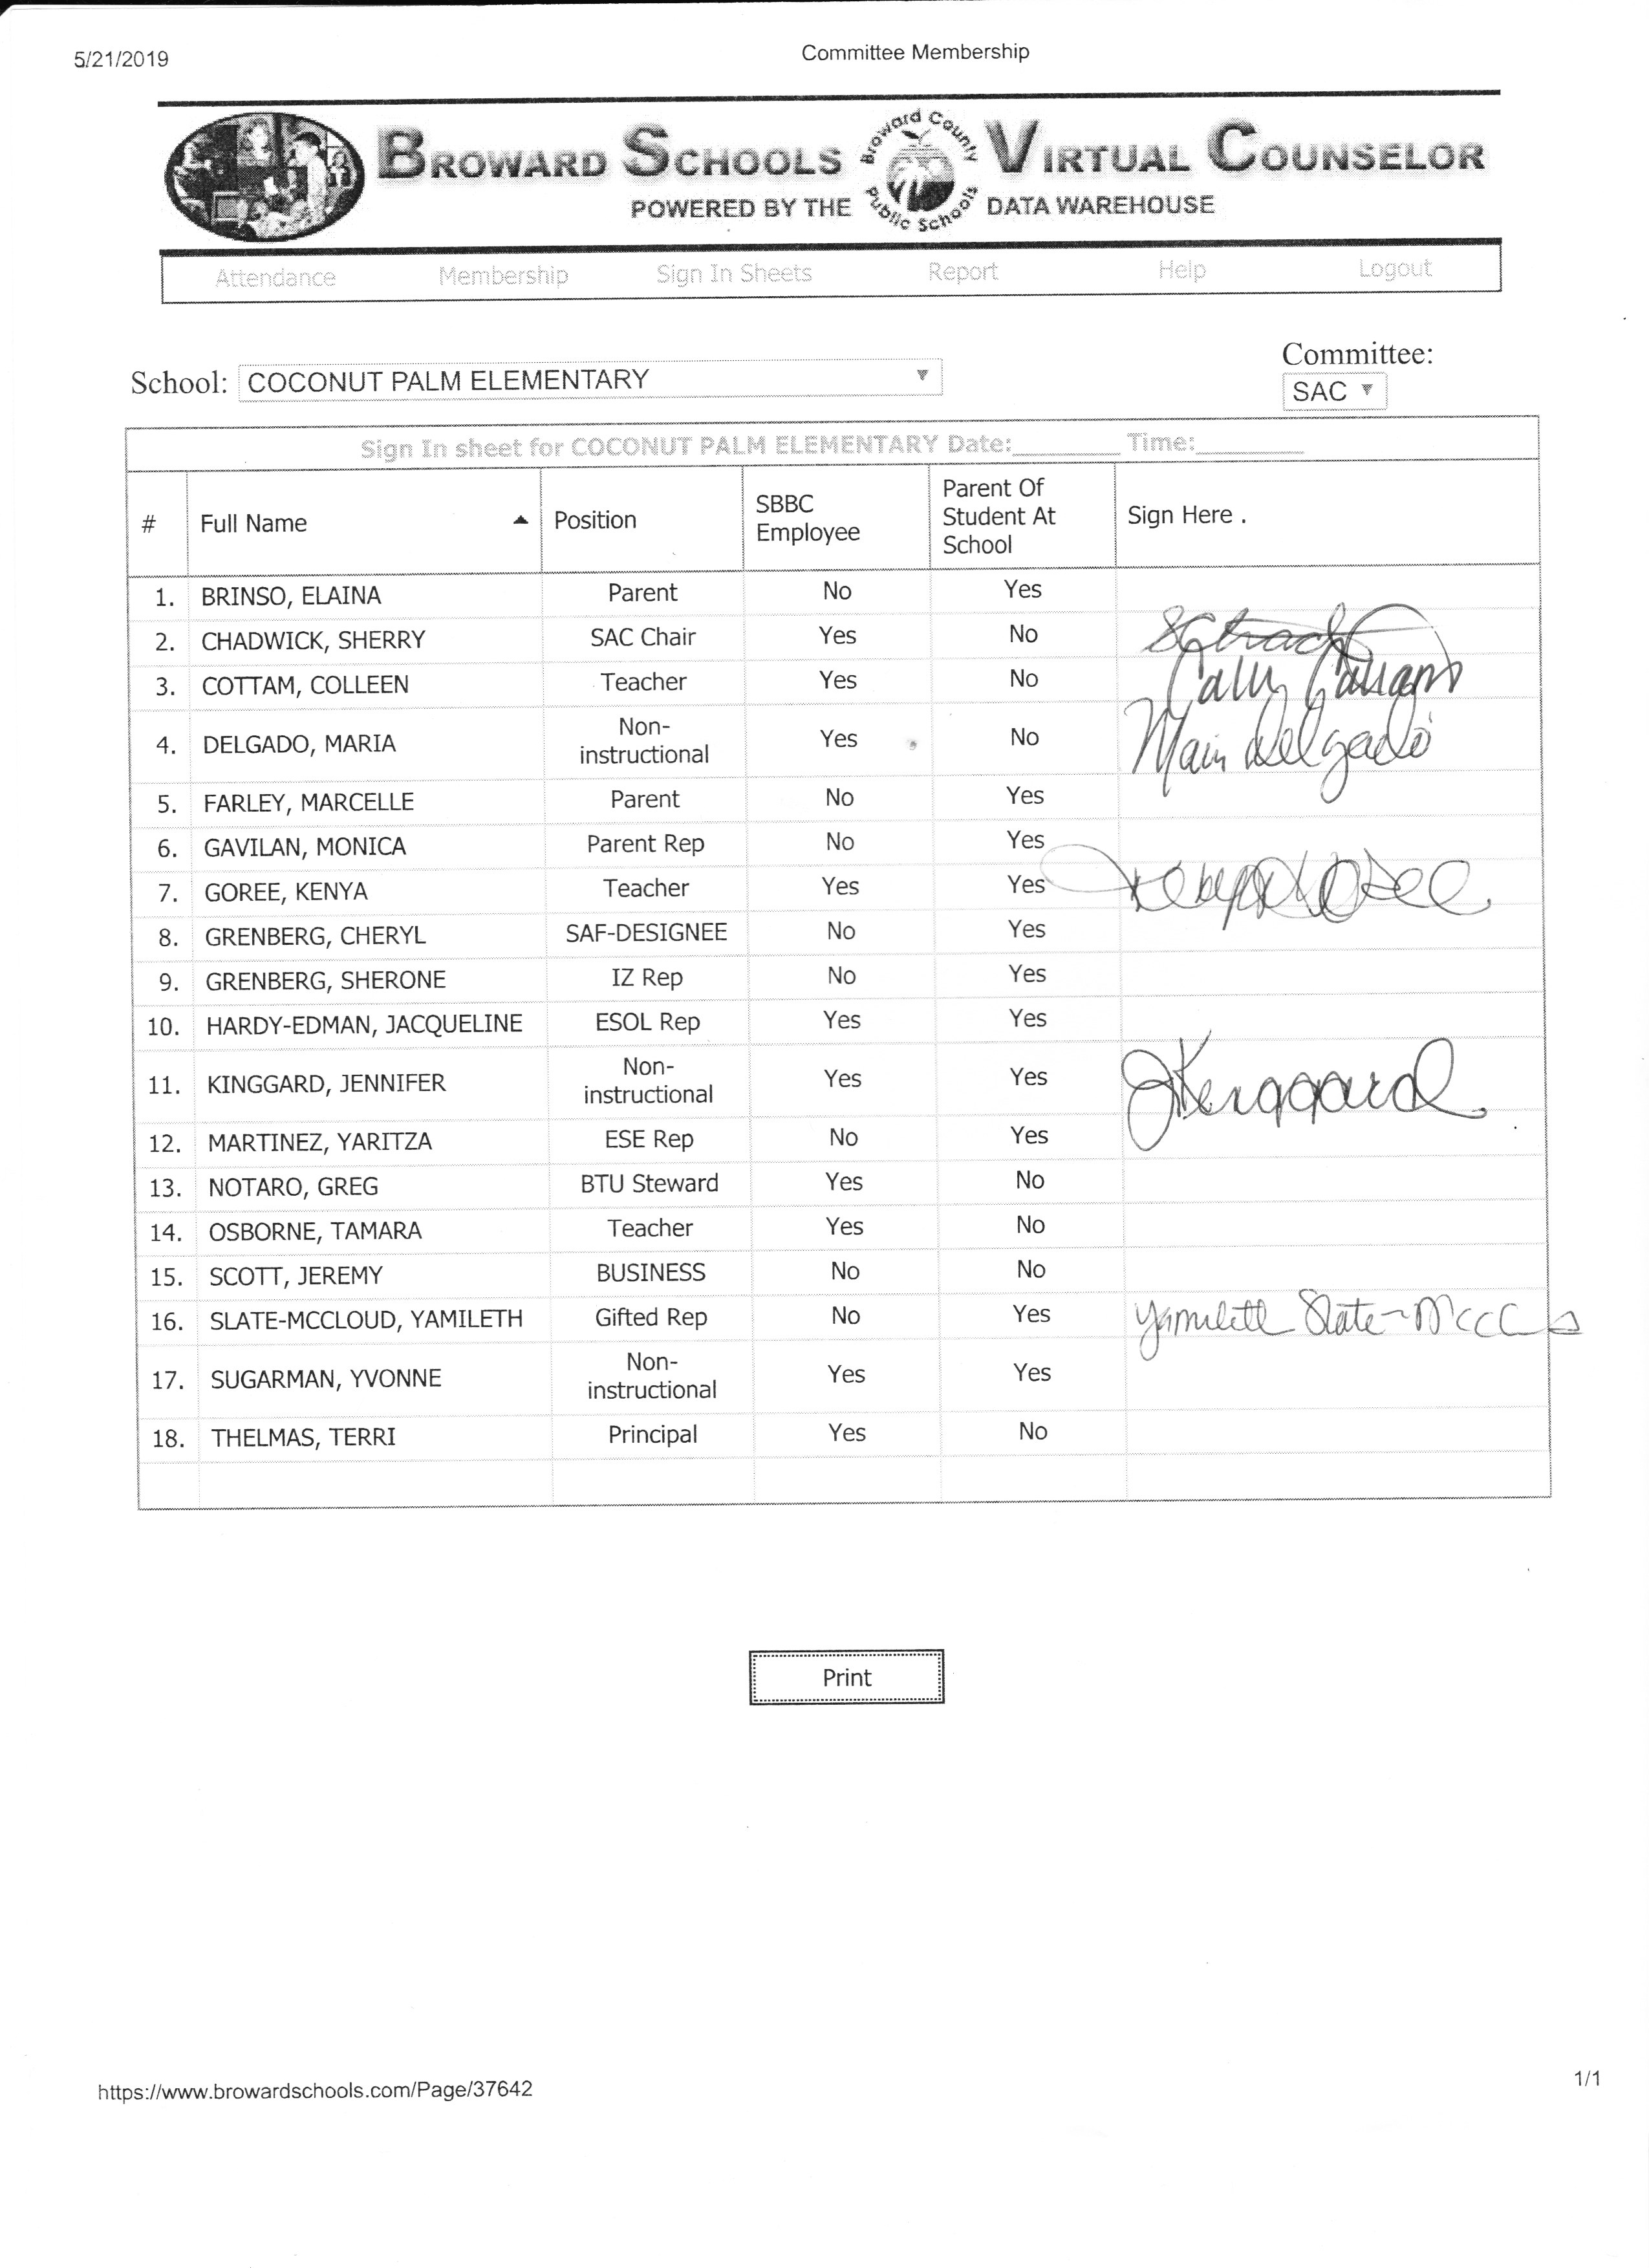 5/21/2019 Committee Membership
BROWARD SCHOOLS Broward County Public Schools VIRTUAL COUNSELOR
POWERED BY THE DATA WAREHOUSE
Attendance Membership Sign In Sheets Report Help Logout
School: COCONUT PALM ELEMENTARY Committee: SAC
Sign In sheet for COCONUT PALM ELEMENTARY Date:________ Time:________
# Full Name Position SBBC Employee Parent Of Student At School Sign Here .
1. BRINSO, ELAINA Parent No Yes
2. CHADWICK, SHERRY SAC Chair Yes No
3. COTTAM, COLLEEN Teacher Yes No
4. DELGADO, MARIA Non-instructional Yes No Maria Delgado
5. FARLEY, MARCELLE Parent No Yes
6. GAVILAN, MONICA Parent Rep No Yes
7. GOREE, KENYA Teacher Yes Yes
8. GRENBERG, CHERYL SAF-DESIGNEE No Yes
9. GRENBERG, SHERONE IZ Rep No Yes
10. HARDY-EDMAN, JACQUELINE ESOL Rep Yes Yes
11. KINGGARD, JENNIFER Non-instructional Yes Yes JKinggard
12. MARTINEZ, YARITZA ESE Rep No Yes
13. NOTARO, GREG BTU Steward Yes No
14. OSBORNE, TAMARA Teacher Yes No
15. SCOTT, JEREMY BUSINESS No No
16. SLATE-MCCLOUD, YAMILETH Gifted Rep No Yes Yamileth Slate-McC
17. SUGARMAN, YVONNE Non-instructional Yes Yes
18. THELMAS, TERRI Principal Yes No
Print
https://www.browardschools.com/Page/37642 1/1